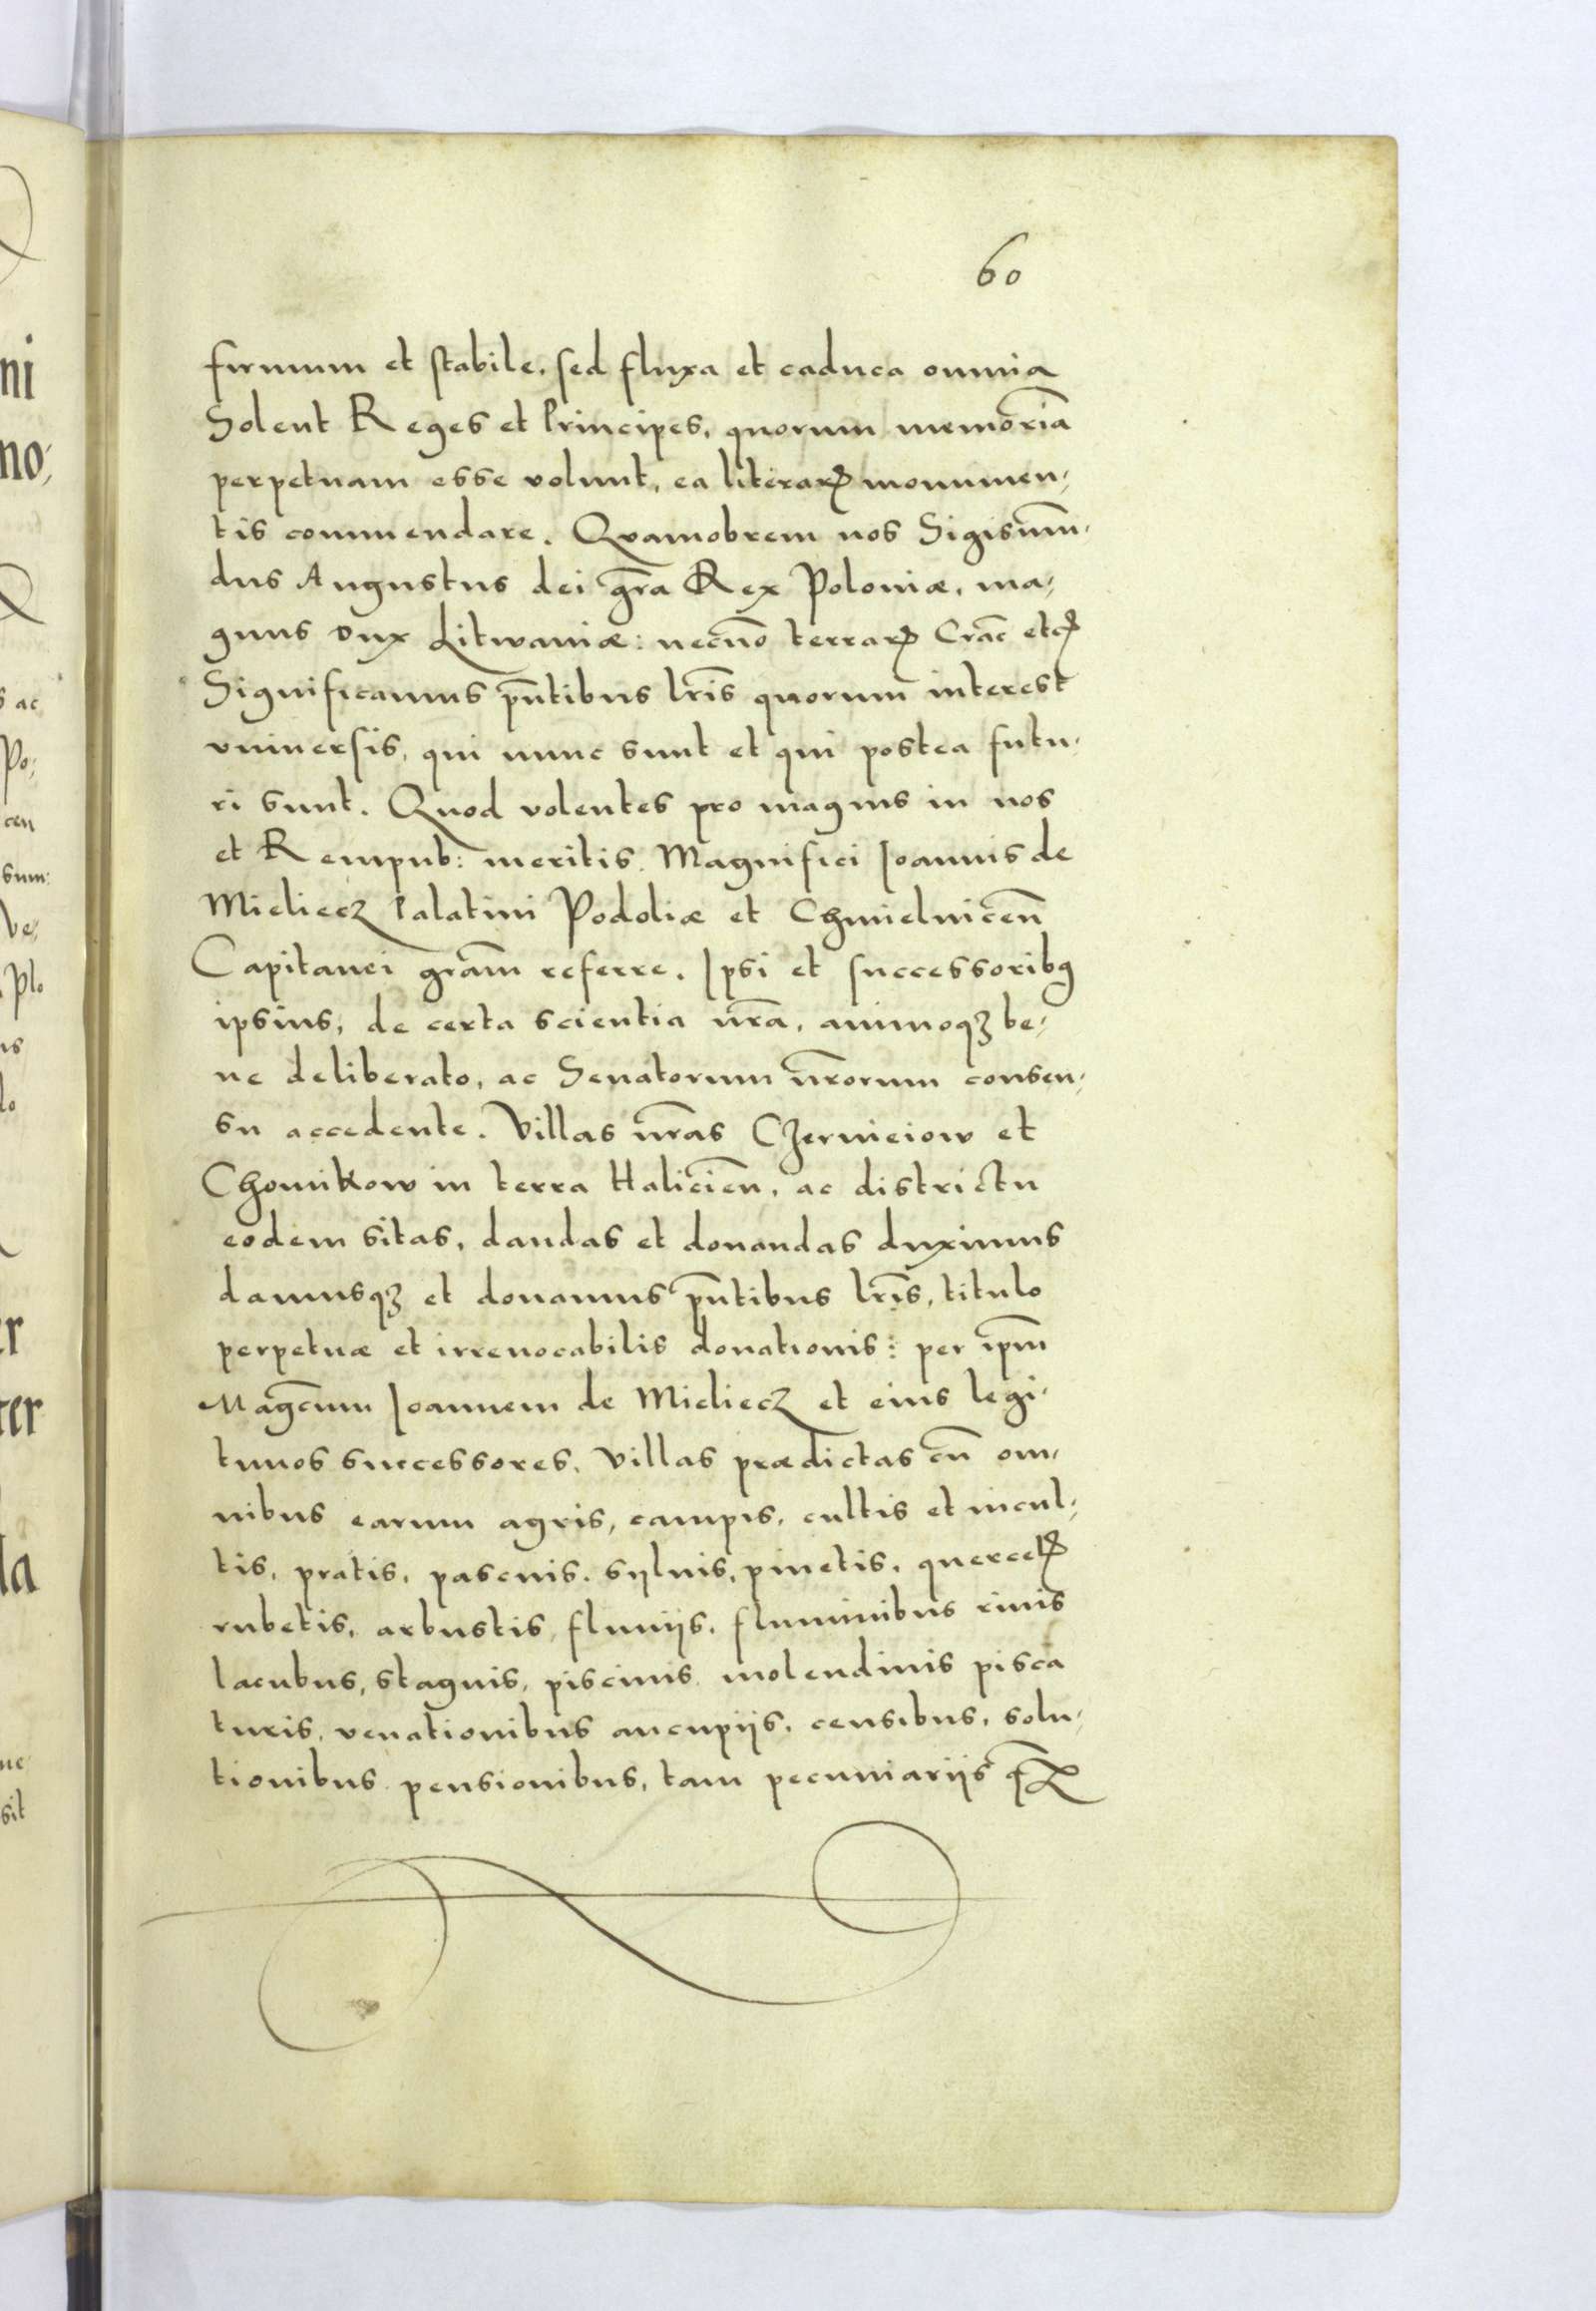 60
firmum et stabile, sed fluxa et caduca omnia
Solent Reges et Principes, quorum memoriã
perpetuam esse volunt, ea literarꝝ monumen,
tis commendare. Quamobrem nos Sigismũ,
dus Augustus dei gra̅ Rex Poloniæ, ma,
gnus Dux Litwaniæ: necno̅ terrarꝝ Crac̅ etcꝫ
Significamus pn̅tibus lr̅is quorum interest
vniuersis, qui nunc sunt et qui postea futu,
ri sunt. Quod volentes pro magnis in nos
et Rempub: meritis. Magnifici Joannis de
Mieliecz Palatini Podoliæ et Chmielnicen̅
Capitanei gra̅m referre. Ipsi et successoribꝰ
ipsius, de certa scientia nr̅a, animoqꝫ be,
ne deliberato, ac Senatorum nr̅orum consen,
su accedente. Villas nr̅as Czernieiow et
Chomikow in terra Halicien̅, ac districtu
eodem sitas, dandas et donandas duximus
damusqꝫ et donamus pn̅tibus lr̅is, titulo
perpetuæ et irreuocabilis donationis: per ip̅m
Magc̅um Joannem de Mieliecz et eius legi,
timos successores, Villas prædictas cu̅ om,
nibus earum agris, campis, cultis et incul,
tis, pratis, pascuis. syluis, pinetis, quercetꝭ
rubetis, arbustis, fluuijs, fluminibus riuis
lacubus, stagnis, piscinis molendinis pisca
turis, venationibus aucupijs, censibus, solu,
tionibus pensionibus, tam pecuniarijs q̅ꝫ